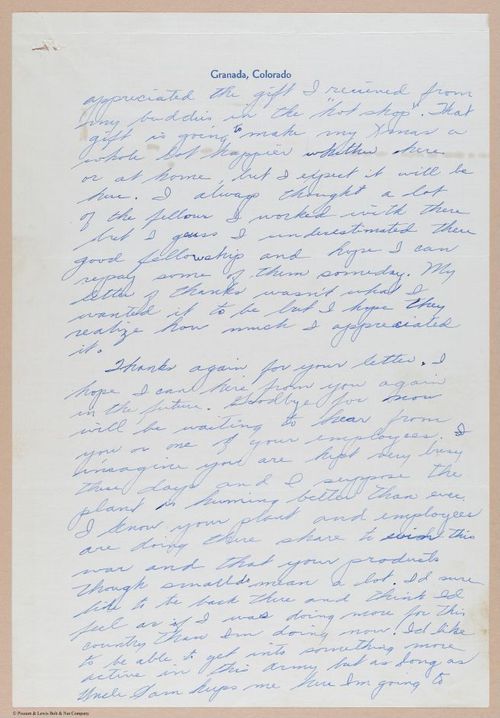 Granada, Colorado
appreciated the gift I recieved from
my buddies in the "hot shop". That
gift is going to make my Xmas a
whole lot happier whether here
or at home, but I expect it will be
here. I always thought a lot
of the fellows I worked with there
but I guess I underestimated there
good fellowship and hope I can
repay some of them someday. My
letter of thanks wasn't what I
wanted it to be but I hope they
realize how much I appreciated
it.
Thanks again for your letter. I
hope I can here from you again
in the future. Goodbye for now
will be waiting to hear from
you or one of your employees. I
imagine you are kept very busy
these days and I suppose the
plant is huming better than ever.
I know your plant and employees
are doing there share to win this
war and that your products
though small do mean a lot. I'd sure
like to be back there and think I'd
feel as if I was doing more for this
country than I'm doing now. I'd like
to be able to get into something more
active in this army but as long as
Uncle Sam keeps me here I'm going to
© Pissant & Lewis Bolt & Nut Company